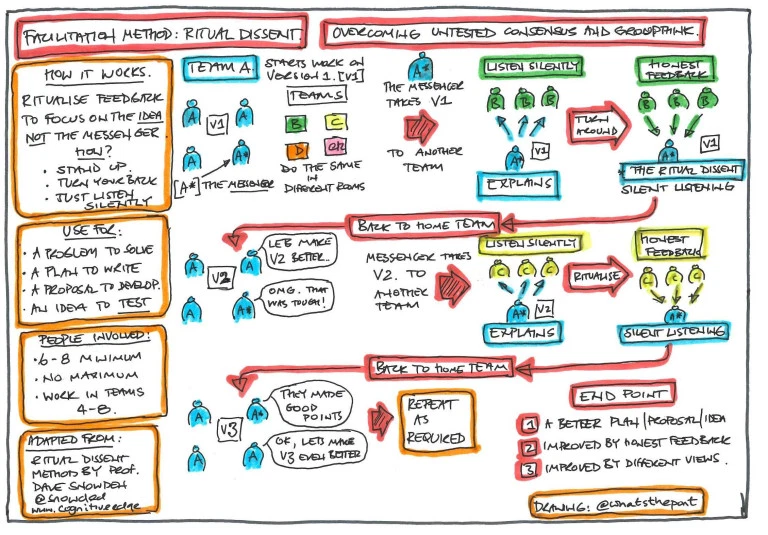 FACILITATION METHOD: RITUAL DISSENT.
OVERCOMING UNTESTED CONSENSUS AND GROUPTHINK.
HOW IT WORKS.
RITUALISE FEEDBACK
TO FOCUS ON THE IDEA
NOT THE MESSENGER
HOW?
• STAND UP.
• TURN YOUR BACK
• JUST LISTEN
SILENTLY
TEAM A.
STARTS WORK ON
VERSION 1. [V1]
TEAMS
A
V1
A
A
A*
[A*] THE MESSENGER
B
C
D
DO THE SAME
IN
DIFFERENT ROOMS
A*
THE MESSENGER
TAKES V1
TO ANOTHER
TEAM
LISTEN SILENTLY
B B B
A*
V1
EXPLAINS
TURN
AROUND
HONEST
FEEDBACK
B B B
V1
A*
* THE RITUAL DISSENT
SILENT LISTENING
BACK TO HOME TEAM
USE FOR:
• A PROBLEM TO SOLVE
• A PLAN TO WRITE
• A PROPOSAL TO DEVELOP.
• AN IDEA TO TEST
A
A
LETS MAKE
V2 BETTER..
V2
A
A*
OMG. THAT
WAS TOUGH!
MESSENGER TAKES
V2. TO
ANOTHER
TEAM
LISTEN SILENTLY
C C C
A*
V2
EXPLAINS
RITUALISE
HONEST
FEEDBACK
C C C
A*
SILENT LISTENING
BACK TO HOME TEAM
PEOPLE INVOLVED:
• 6-8 MINIMUM
• NO MAXIMUM
• WORK IN TEAMS
4-8.
A
A*
THEY MADE
GOOD
POINTS
V3
A
A
OK, LETS MAKE
V3 EVEN BETTER
REPEAT
AS
REQUIRED
END POINT
1 A BETTER PLAN/PROPOSAL/IDEA
2 IMPROVED BY HONEST FEEDBACK
3 IMPROVED BY DIFFERENT VIEWS.
ADAPTED FROM:
RITUAL DISSENT
METHOD BY PROF.
DAVE SNOWDEN
@snowded
www.cognitiveedge
DRAWING: @whatsthepont